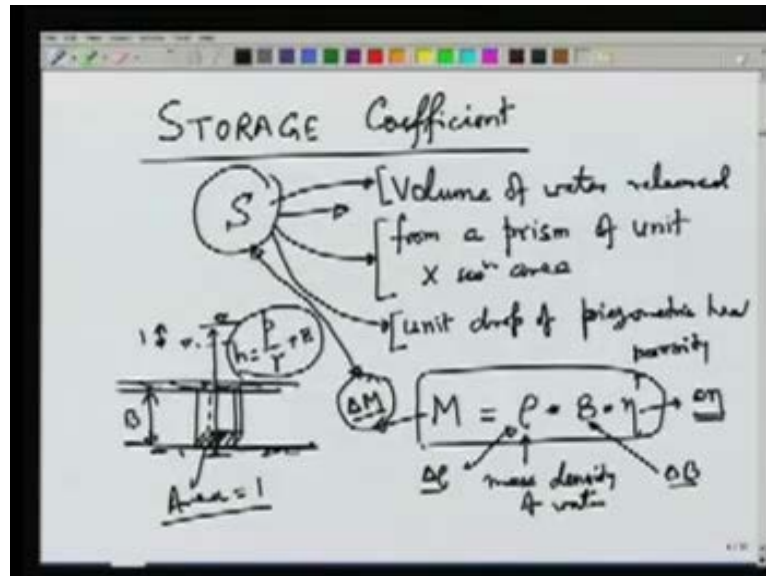 STORAGE Coefficient
S
[Volume of water released
from a prism of unit
X secn area
[unit drop of piezometric head
porosity
1
h = p/γ + z
B
ΔM
M = ρ * B * η
Δη
Δρ
mass density
of water
ΔB
Area = 1